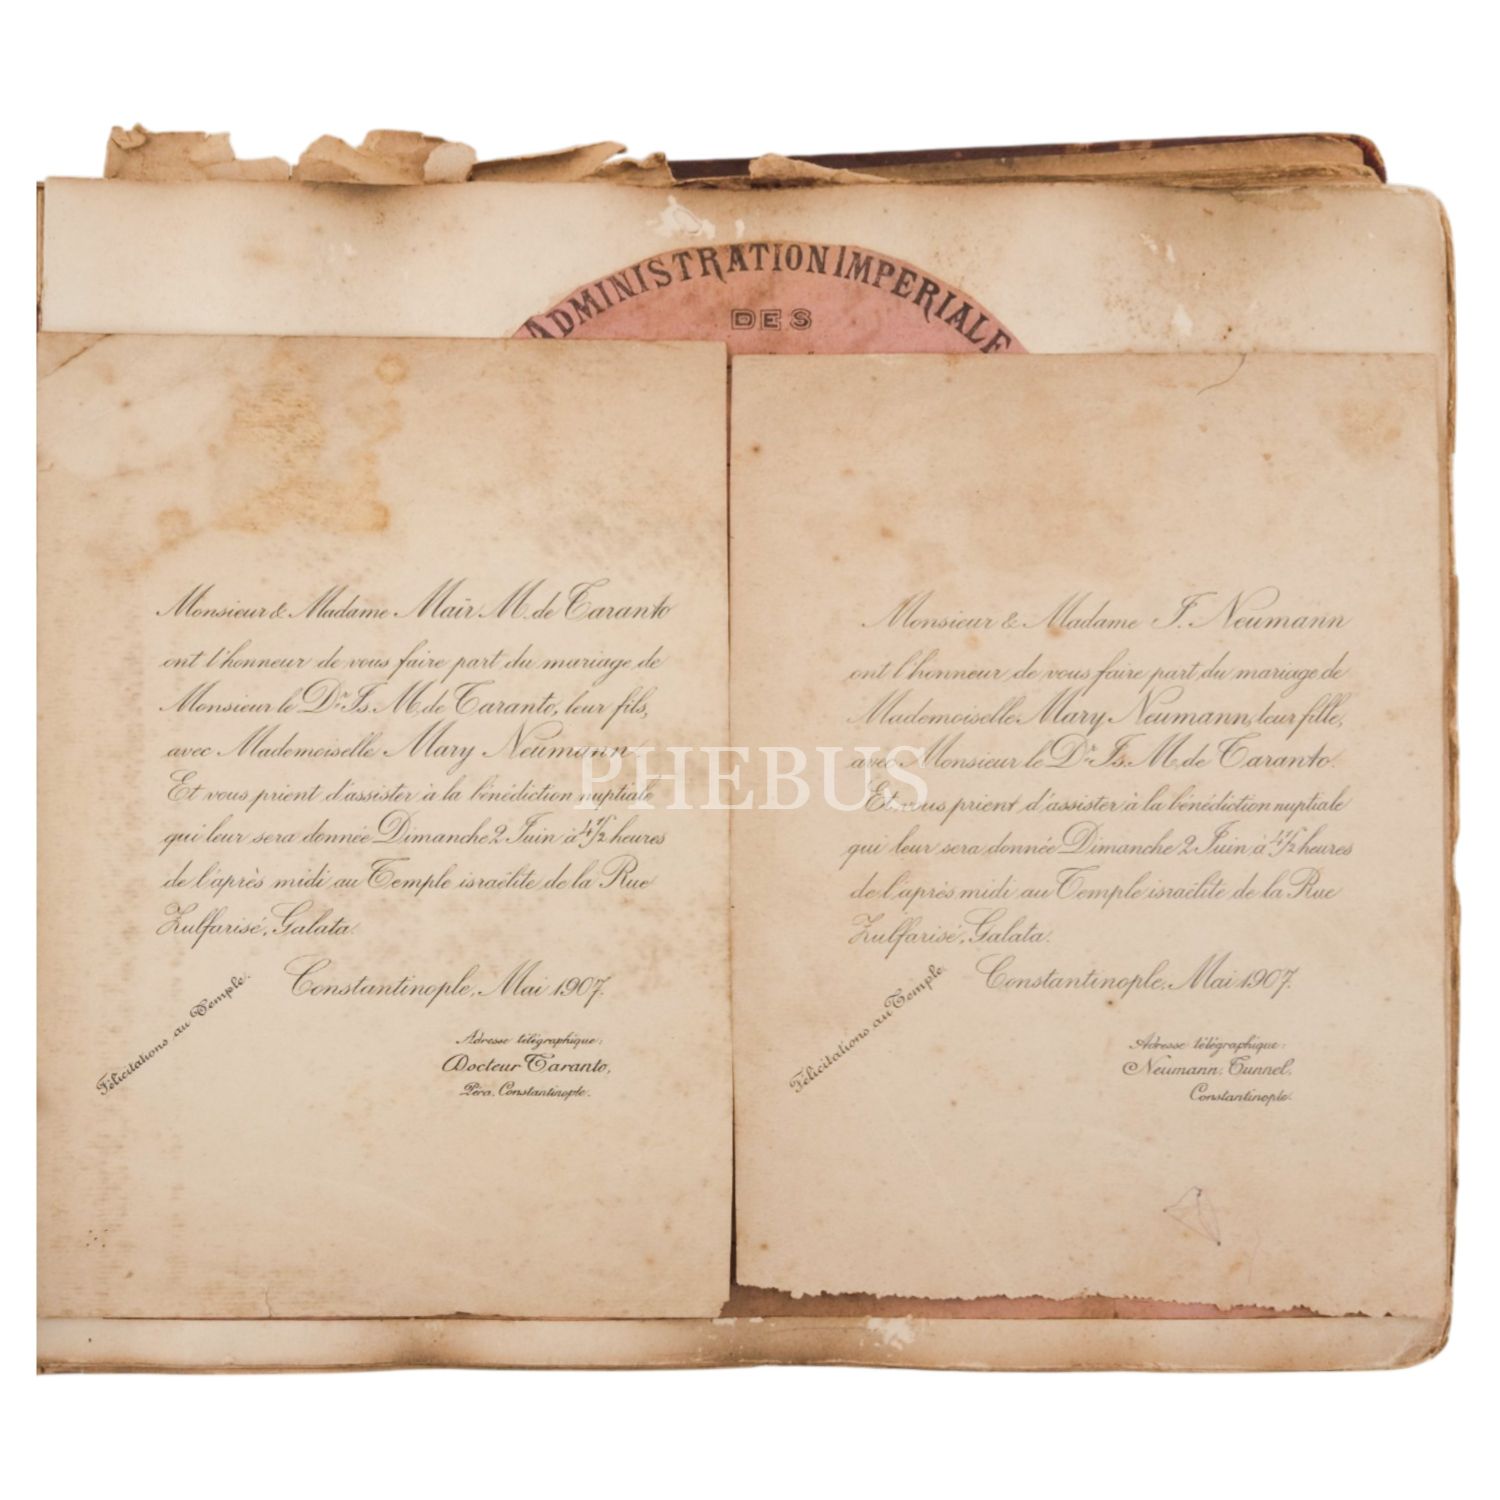 ADMINISTRATION IMPERIALE
DES
Monsieur & Madame Maïr M. de Taranto
ont l'honneur de vous faire part du mariage de
Monsieur le Dr. Is. M. de Taranto, leur fils,
avec Mademoiselle Mary Neumann.
Et vous prient d'assister à la bénédiction nuptiale
qui leur sera donnée Dimanche 2 Juin à 4 1/2 heures
de l'après midi au Temple israëlite de la Rue
Zulfarisé, Galata.
Constantinople, Mai 1907.
Félicitations au Temple.
Adresse télégraphique:
Docteur Taranto,
Péra, Constantinople.
Monsieur & Madame F. Neumann
ont l'honneur de vous faire part du mariage de
Mademoiselle Mary Neumann, leur fille,
avec Monsieur le Dr. Is. M. de Taranto.
Et vous prient d'assister à la bénédiction nuptiale
qui leur sera donnée Dimanche 2 Juin à 4 1/2 heures
de l'après midi au Temple israëlite de la Rue
Zulfarisé, Galata.
Constantinople, Mai 1907.
Félicitations au Temple.
Adresse télégraphique:
Neumann, Tunnel,
Constantinople.
PHEBUS